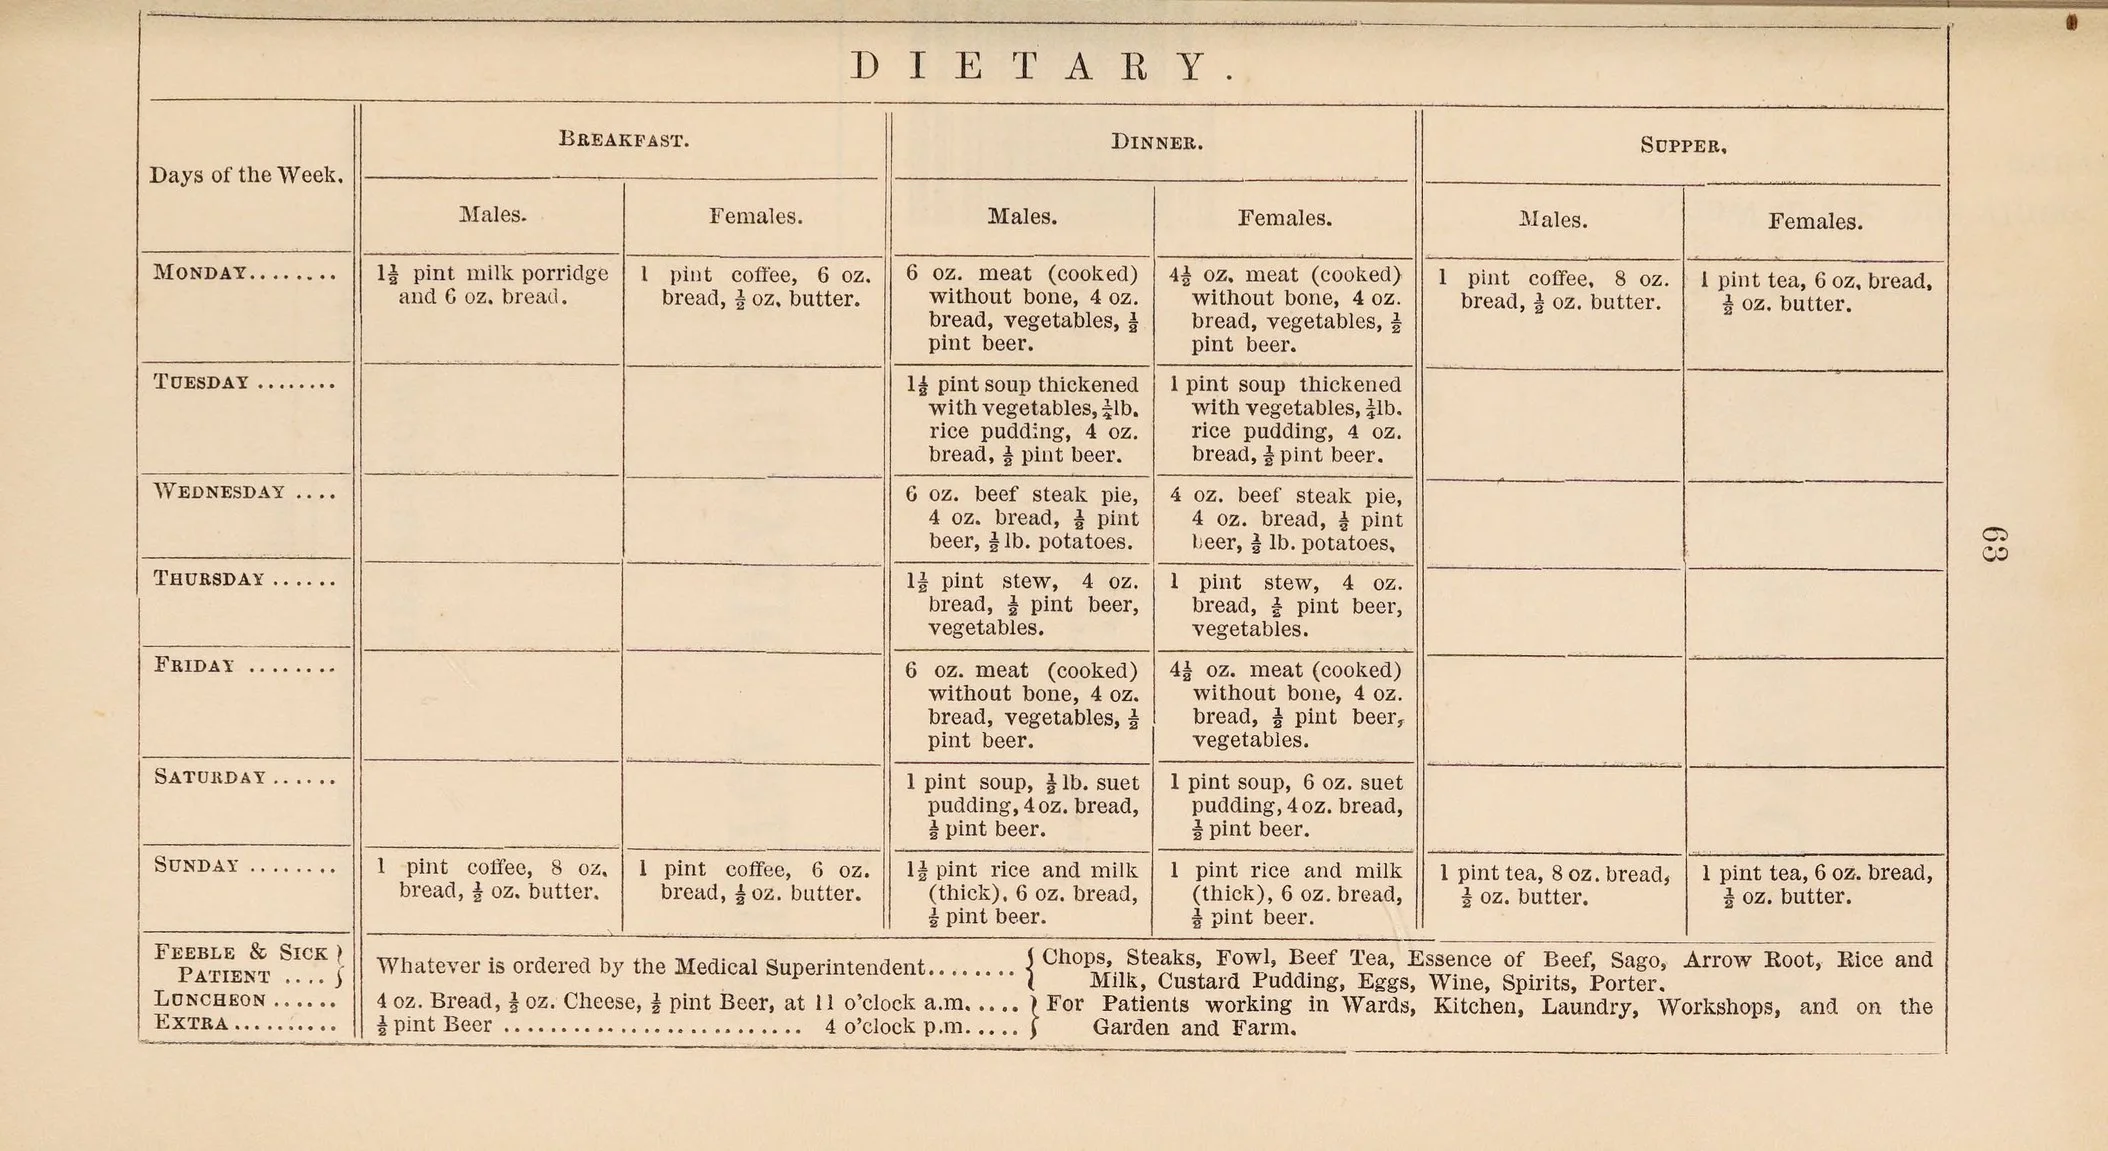 DIETARY.
Days of the Week.
BREAKFAST.
DINNER.
SUPPER.
Males.
Females.
Males.
Females.
Males.
Females.
MONDAY........
1½ pint milk porridge
and 6 oz. bread.
1 pint coffee, 6 oz.
bread, ½ oz. butter.
6 oz. meat (cooked)
without bone, 4 oz.
bread, vegetables, ½
pint beer.
4½ oz. meat (cooked)
without bone, 4 oz.
bread, vegetables, ½
pint beer.
1 pint coffee, 8 oz.
bread, ½ oz. butter.
1 pint tea, 6 oz. bread,
½ oz. butter.
TUESDAY ........
1½ pint soup thickened
with vegetables, ¼lb.
rice pudding, 4 oz.
bread, ½ pint beer.
1 pint soup thickened
with vegetables, ¼lb.
rice pudding, 4 oz.
bread, ½ pint beer.
WEDNESDAY ....
6 oz. beef steak pie,
4 oz. bread, ½ pint
beer, ½ lb. potatoes.
4 oz. beef steak pie,
4 oz. bread, ½ pint
beer, ½ lb. potatoes.
THURSDAY ......
1½ pint stew, 4 oz.
bread, ½ pint beer,
vegetables.
1 pint stew, 4 oz.
bread, ½ pint beer,
vegetables.
FRIDAY ........
6 oz. meat (cooked)
without bone, 4 oz.
bread, vegetables, ½
pint beer.
4½ oz. meat (cooked)
without bone, 4 oz.
bread, ½ pint beer,
vegetables.
SATURDAY ......
1 pint soup, ½ lb. suet
pudding, 4 oz. bread,
½ pint beer.
1 pint soup, 6 oz. suet
pudding, 4 oz. bread,
½ pint beer.
SUNDAY ........
1 pint coffee, 8 oz.
bread, ½ oz. butter.
1 pint coffee, 6 oz.
bread, ½ oz. butter.
1½ pint rice and milk
(thick), 6 oz. bread,
½ pint beer.
1 pint rice and milk
(thick), 6 oz. bread,
½ pint beer.
1 pint tea, 8 oz. bread,
½ oz. butter.
1 pint tea, 6 oz. bread,
½ oz. butter.
FEEBLE & SICK }
PATIENT .... }
Whatever is ordered by the Medical Superintendent........
{ Chops, Steaks, Fowl, Beef Tea, Essence of Beef, Sago, Arrow Root, Rice and
Milk, Custard Pudding, Eggs, Wine, Spirits, Porter.
LUNCHEON ......
4 oz. Bread, ½ oz. Cheese, ½ pint Beer, at 11 o'clock a.m. ....
EXTRA ..........
½ pint Beer ............................ 4 o'clock p.m. ....
} For Patients working in Wards, Kitchen, Laundry, Workshops, and on the
Garden and Farm.
63